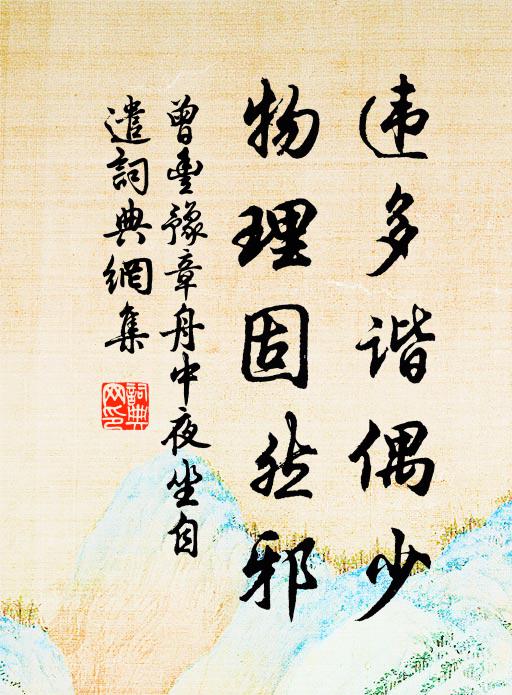 违多谐偶少
物理固然邪
曾豊豫章舟中夜坐自
遣詞典網集
詞典
网印